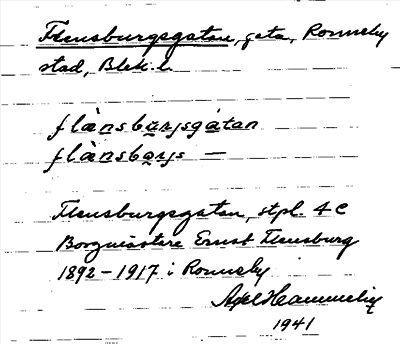 Flensburgsgatan, gata, Ronneby
stad, Blek. l.
flànsbu̱rjsgátan
flànsbu̱rjs —
Flensburgsgatan, stpl. 4 C
Borgmästare Ernst Flensburg
1892–1917 i Ronneby
Axel Hammelig
1941